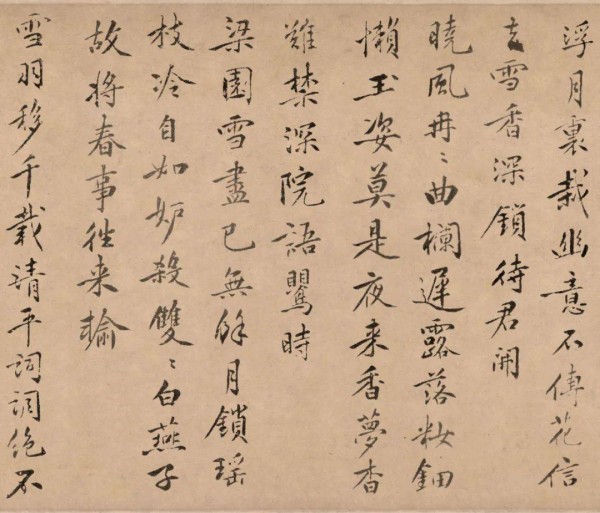 浮月裏栽幽意不傳花信
去雪香深鎖待君開
曉風冉〻曲欄遲露落粧鈿
懶玉姿莫是夜来香夢杳
難禁深院語鸎時
梁園雪盡已無餘月鎖瑶
枝冷自如妒殺雙〻白燕子
故將春事往来輸
雪羽移千載清平詞調絶不